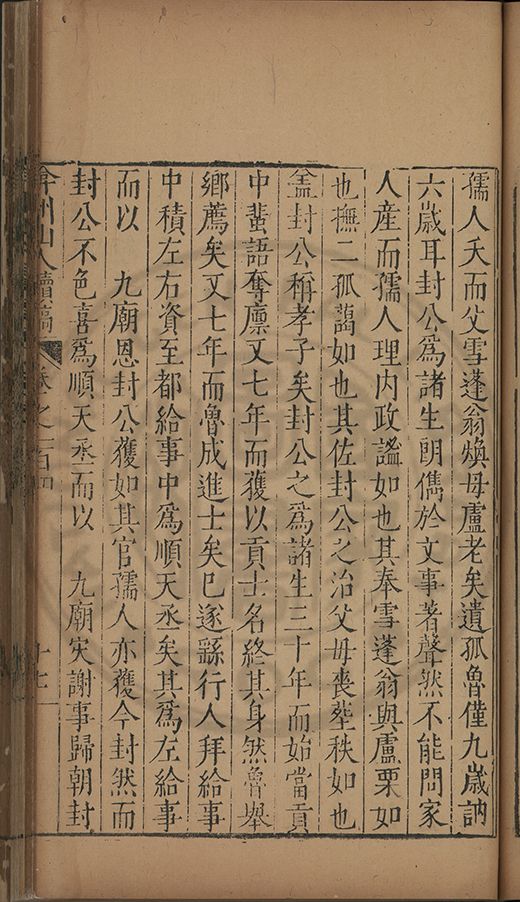 孺人夭而父雪蓬翁煥母盧老矣遺孤魯僅九歲訥
六歲耳封公爲諸生朗儁於文事著聲然不能問家
人產而孺人理内政謐如也其奉雪蓬翁與盧栗如
也撫二孤藹如也其佐封公之治父母喪塟秩如也
盖封公稱孝子矣封公之爲諸生三十年而始當貢
中蜚語奪廪又七年而獲以貢士名終其身然魯舉
鄉薦矣又七年而魯成進士矣已遂繇行人拜給事
中積左右資至都給事中爲順天丞矣其爲左給事
而以 九廟恩封公獲如其官孺人亦獲今封然而
封公不色喜爲順天丞而以 九廟灾謝事歸朝封
弇州山人續稿 卷之一百四 十七